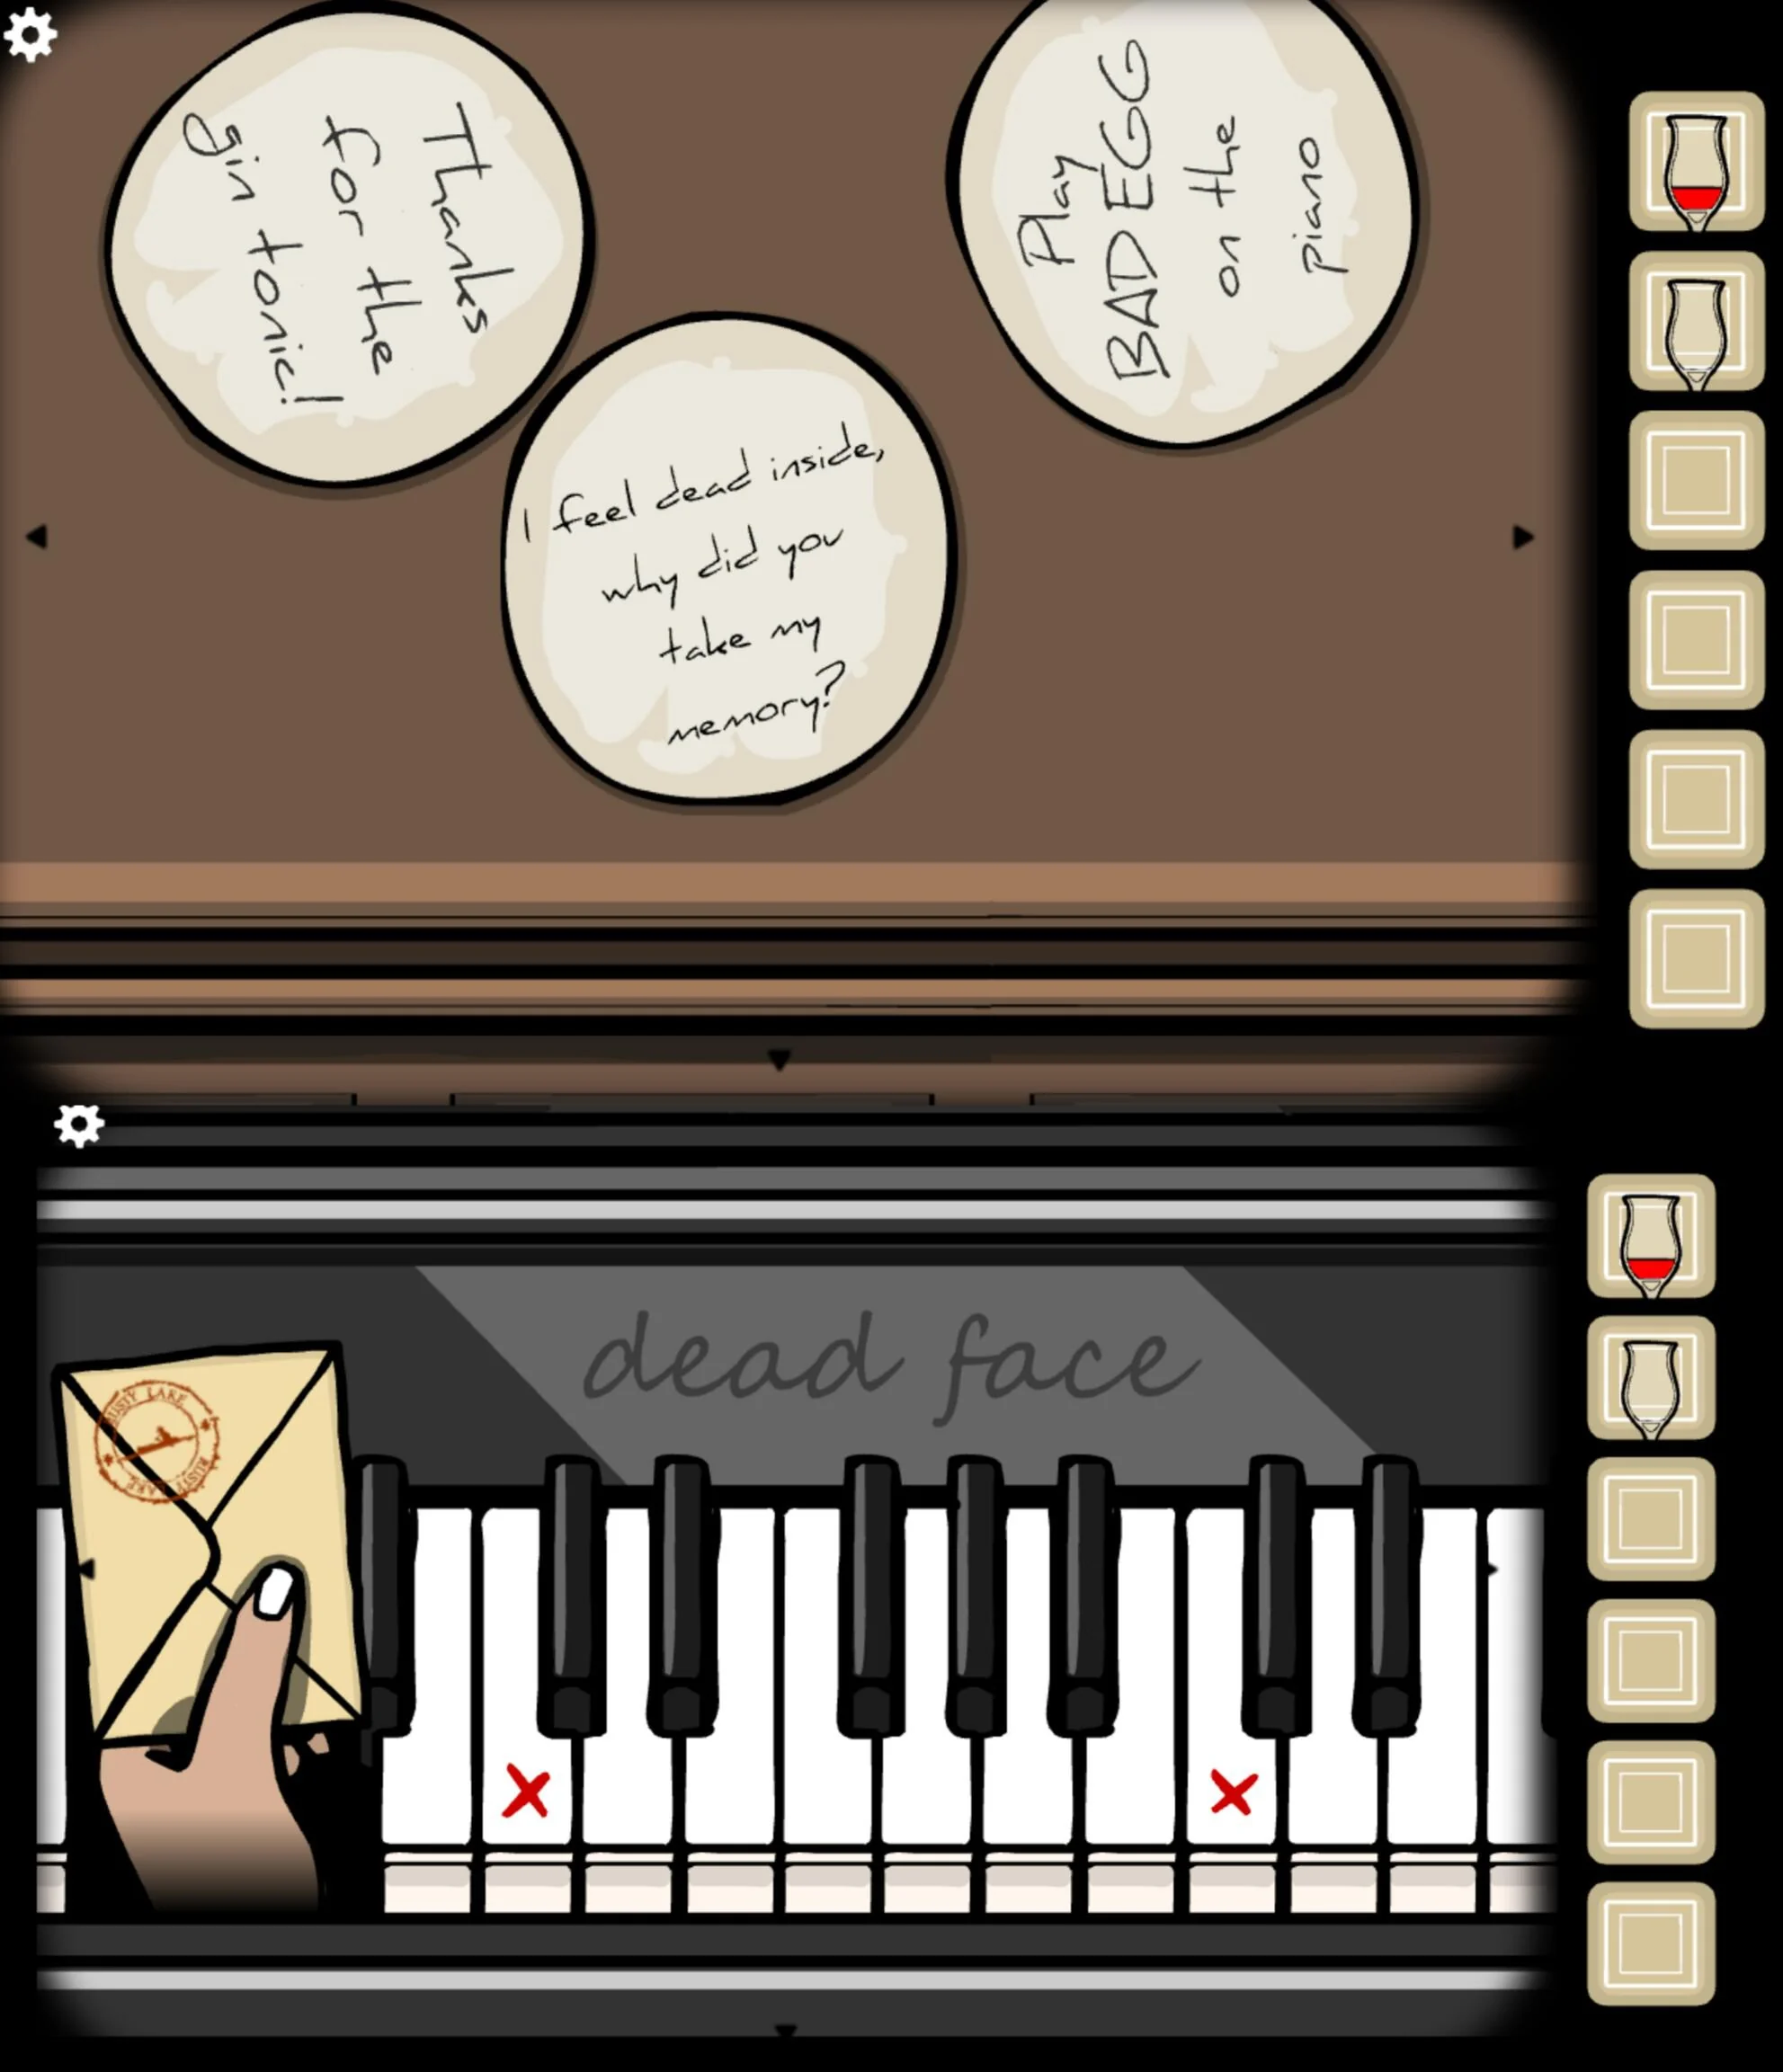 Thanks
for the
gin tonic!
Play
BAD EGG
on the
piano
I feel dead inside,
why did you
take my
memory?
dead face
RUSTY LAKE
RUSTY LAKE